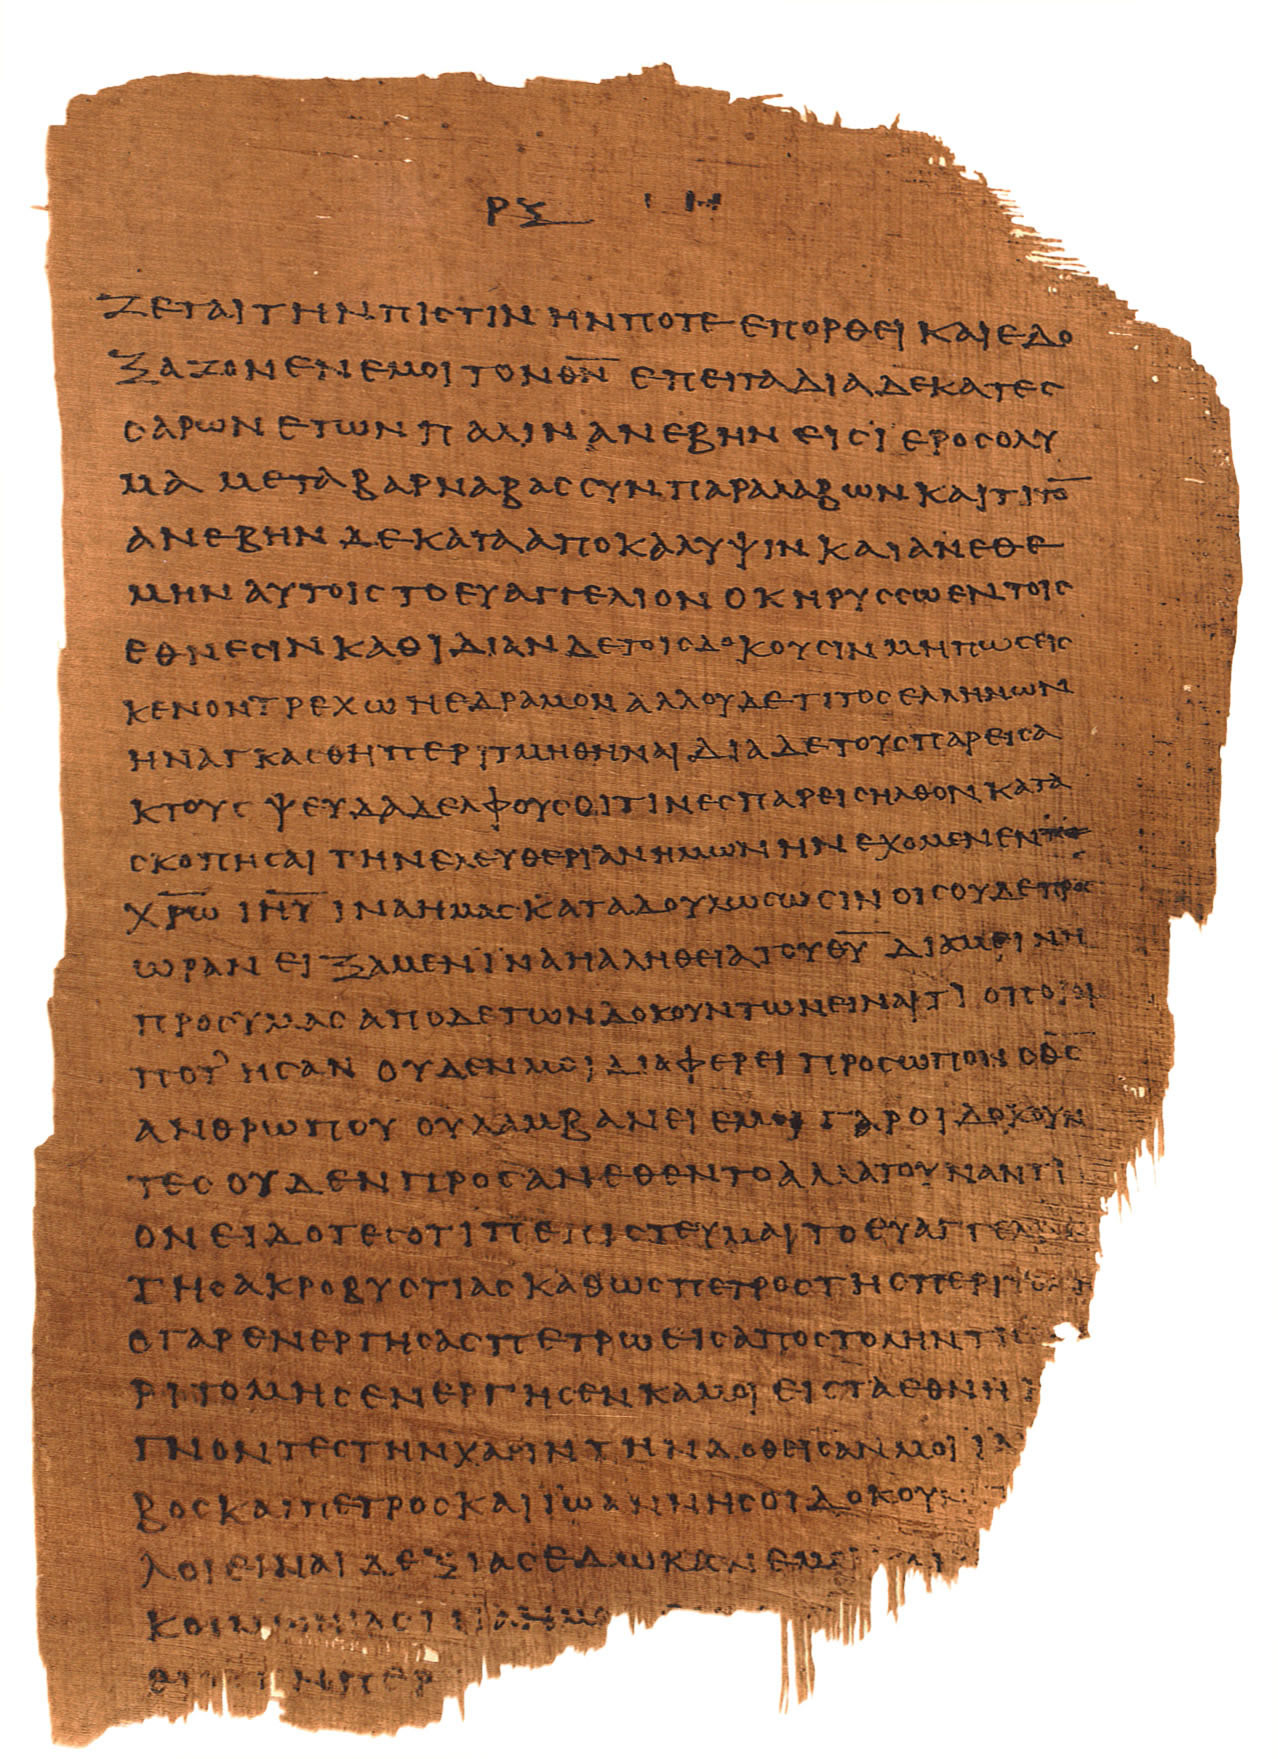 ΡΞ
ΖΕΤΑΙ ΤΗΝ ΠΙΣΤΙΝ ΗΝ ΠΟΤΕ ΕΠΟΡΘΕΙ ΚΑΙ ΕΔΟ
ΞΑΖΟΝ ΕΝ ΕΜΟΙ ΤΟΝ Θ̅Ν̅ ΕΠΕΙΤΑ ΔΙΑ ΔΕΚΑΤΕϹ
ϹΑΡΩΝ ΕΤΩΝ ΠΑΛΙΝ ΑΝΕΒΗΝ ΕΙϹ ΙΕΡΟϹΟΛΥ
ΜΑ ΜΕΤΑ ΒΑΡΝΑΒΑϹ ϹΥΝΠΑΡΑΛΑΒΩΝ ΚΑΙ ΤΙΤΟ̅
ΑΝΕΒΗΝ ΔΕ ΚΑΤΑ ΑΠΟΚΑΛΥΨΙΝ ΚΑΙ ΑΝΕΘΕ
ΜΗΝ ΑΥΤΟΙϹ ΤΟ ΕΥΑΓΓΕΛΙΟΝ Ο ΚΗΡΥϹϹΩ ΕΝ ΤΟΙϹ
ΕΘΝΕϹΙΝ ΚΑΘ ΙΔΙΑΝ ΔΕ ΤΟΙϹ ΔΟΚΟΥϹΙΝ ΜΗ ΠΩϹ ΕΙϹ
ΚΕΝΟΝ ΤΡΕΧΩ Η ΕΔΡΑΜΟΝ ΑΛΛ ΟΥΔΕ ΤΙΤΟϹ ΕΛΛΗΝ ΩΝ
ΗΝΑΓΚΑϹΘΗ ΠΕΡΙΤΜΗΘΗΝΑΙ ΔΙΑ ΔΕ ΤΟΥϹ ΠΑΡΕΙϹΑ
ΚΤΟΥϹ ΨΕΥΔΑΔΕΛΦΟΥϹ ΟΙΤΙΝΕϹ ΠΑΡΕΙϹΗΛΘΟΝ ΚΑΤΑ
ϹΚΟΠΗϹΑΙ ΤΗΝ ΕΛΕΥΘΕΡΙΑΝ ΗΜΩΝ ΗΝ ΕΧΟΜΕΝ ΕΝ
Χ̅Ρ̅Ω̅ Ι̅Η̅Υ̅ ΙΝΑ ΗΜΑϹ ΚΑΤΑΔΟΥΛΩϹΩϹΙΝ ΟΙϹ ΟΥΔΕ ΠΡΟϹ
ΩΡΑΝ ΕΙΞΑΜΕΝ ΙΝΑ Η ΑΛΗΘΕΙΑ ΤΟΥ Θ̅Υ̅ ΔΙΑΜΕΙΝΗ
ΠΡΟϹ ΥΜΑϹ ΑΠΟ ΔΕ ΤΩΝ ΔΟΚΟΥΝΤΩΝ ΕΙΝΑΙ ΤΙ ΟΠΟΙΟΙ
ΠΟΤ’ ΗϹΑΝ ΟΥΔΕΝ ΜΟΙ ΔΙΑΦΕΡΕΙ ΠΡΟϹΩΠΟΝ Ο Θ̅Ϲ̅
ΑΝΘΡΩΠΟΥ ΟΥ ΛΑΜΒΑΝΕΙ ΕΜΟΙ ΓΑΡ ΟΙ ΔΟΚΟΥΝ
ΤΕϹ ΟΥΔΕΝ ΠΡΟϹΑΝΕΘΕΝΤΟ ΑΛΛΑ ΤΟΥΝΑΝΤΙ
ΟΝ ΕΙΔΟΤΕϹ ΟΤΙ ΠΕΠΙϹΤΕΥΜΑΙ ΤΟ ΕΥΑΓΓΕΛ
ΤΗϹ ΑΚΡΟΒΥϹΤΙΑϹ ΚΑΘΩϹ ΠΕΤΡΟϹ ΤΗϹ ΠΕΡΙΤΟΜΗ
Ο ΓΑΡ ΕΝΕΡΓΗϹΑϹ ΠΕΤΡΩ ΕΙϹ ΑΠΟϹΤΟΛΗΝ Τ
ΡΙΤΟΜΗϹ ΕΝΕΡΓΗϹΕΝ ΚΑΜΟΙ ΕΙϹ ΤΑ ΕΘΝΗ
ΓΝΟΝΤΕϹ ΤΗΝ ΧΑΡΙΝ ΤΗΝ ΔΟΘΕΙϹΑΝ ΜΟΙ ΙΑ
ΒΟϹ ΚΑΙ ΠΕΤΡΟϹ ΚΑΙ ΙΩΑΝΝΗϹ ΟΙ ΔΟΚΟΥ
ΛΟΙ ΕΙΝΑΙ ΔΕΞΙΑϹ ΕΔΩΚΑΝ ΕΜΟΙ ΚΑΙ
ΚΟΙΝΩΝΙΑϹ ΙΝΑ ΗΜ